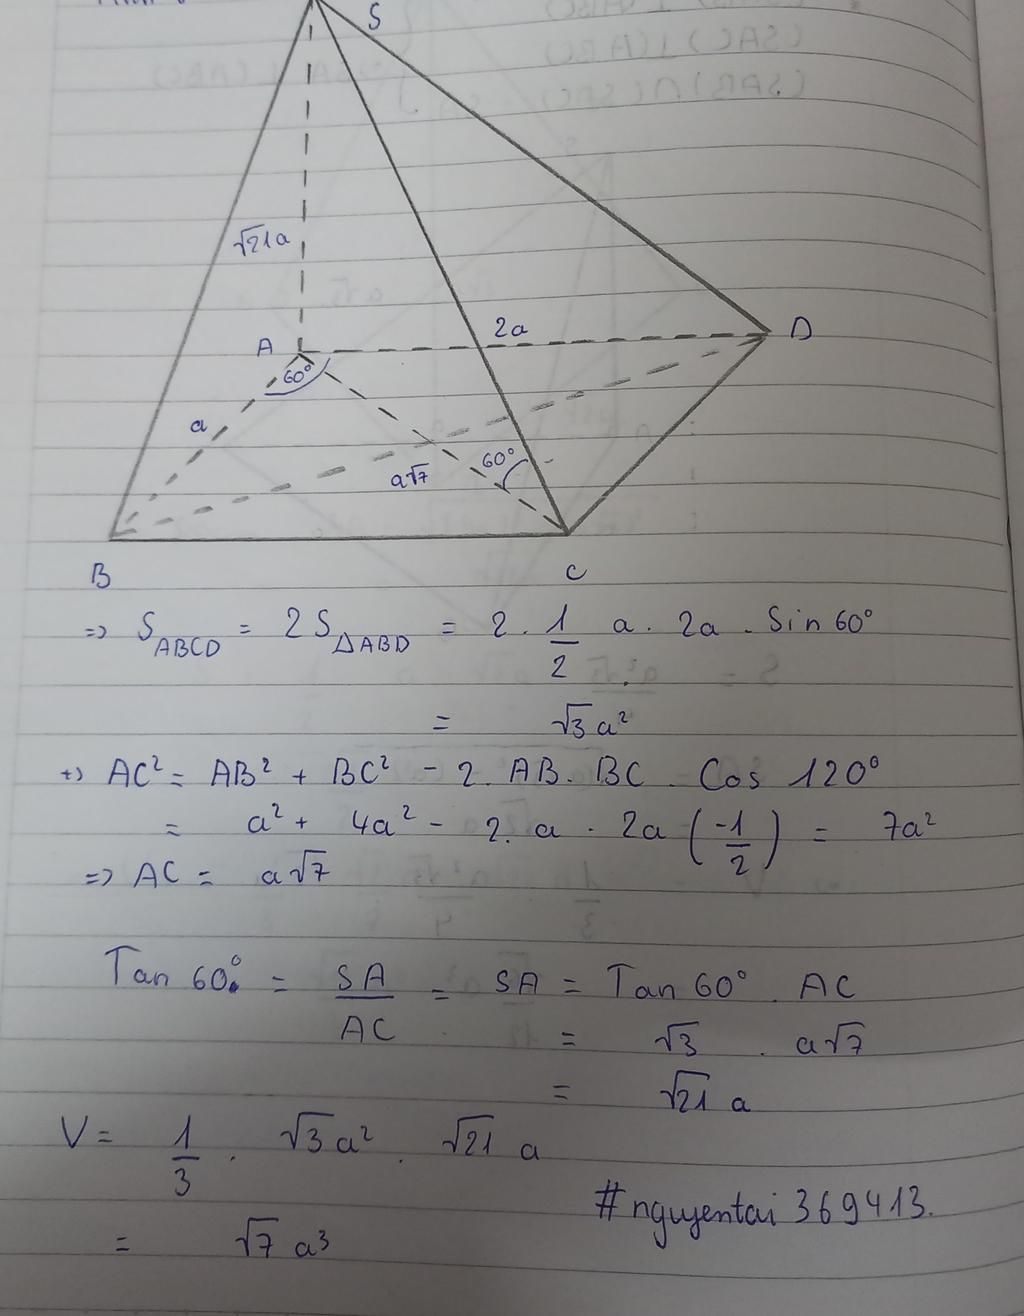 S
√21a
2a
A
D
60°
a
60°
a√7
B
C
=> S_ABCD = 2S_ΔABD = 2 . 1/2 a . 2a . Sin 60°
= √3 a²
+) AC² = AB² + BC² - 2. AB. BC . Cos 120°
= a² + 4a² - 2. a . 2a (-1/2) = 7a²
=> AC = a√7
Tan 60° = SA/AC = SA = Tan 60° . AC
= √3 . a√7
= √21 a
V = 1/3 . √3 a² . √21 a
#nguyentai 369413.
= √7 a³